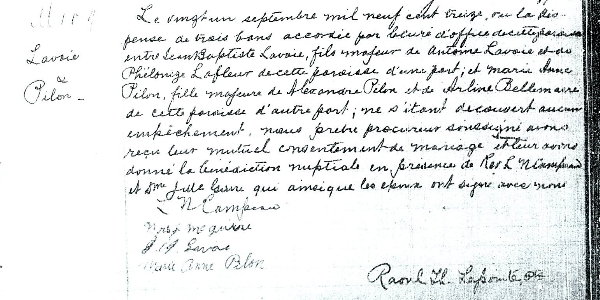 M 109
Lavoie
&
Pilon
Le vingt un septembre mil neuf cent treize, vu la dis-
pense de trois bans accordée par le curé d'office de cette paroisse
entre Jean Baptiste Lavoie, fils majeur de Antoine Lavoie et de
Philonize Lafleur de cette paroisse d'une part; et Marie Anne
Pilon, fille majeure de Alexandre Pilon et de Arline Bellemare
de cette paroisse d'autre part; ne s'étant découvert aucun
empêchement, nous prêtre procureur soussigné avons
reçu leur mutuel consentement de mariage et leur avons
donné la bénédiction nuptiale en présence de L N Campeau
et Dme qui ainsi que les époux ont signé avec nous
L N Campeau
Mrs J McGuire
J. B. Lavoie
Marie Anne Pilon
Raoul Th. Lapointe, ptre